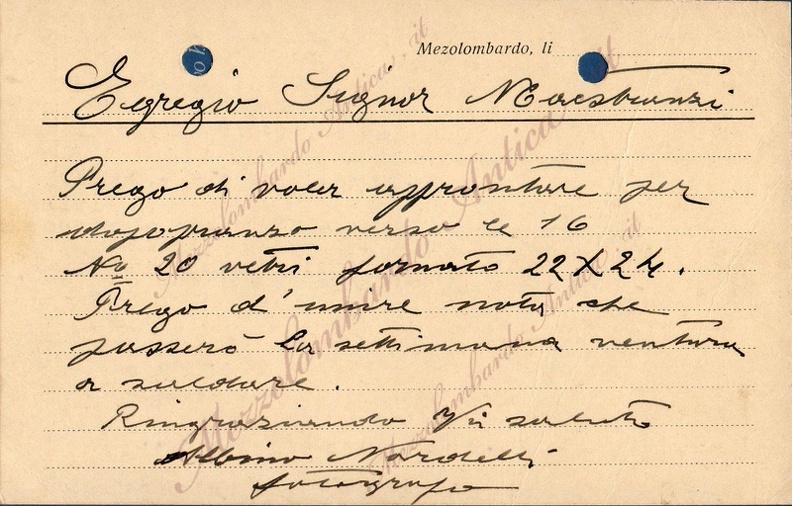 Mezolombardo, li
Egregio Signor Maestranzi
Prego di voler approntare per
dopopranzo verso le 16
No 20 vetri formato 22X24.
Prego d'unire nota che
passerò la settimana ventura
a saldare.
Ringraziando Vi saluto
Albino Nardelli
fotografo
Mezzolombardo Antica.it
Mezzolombardo Antica.it
Mezzolombardo Antica.it